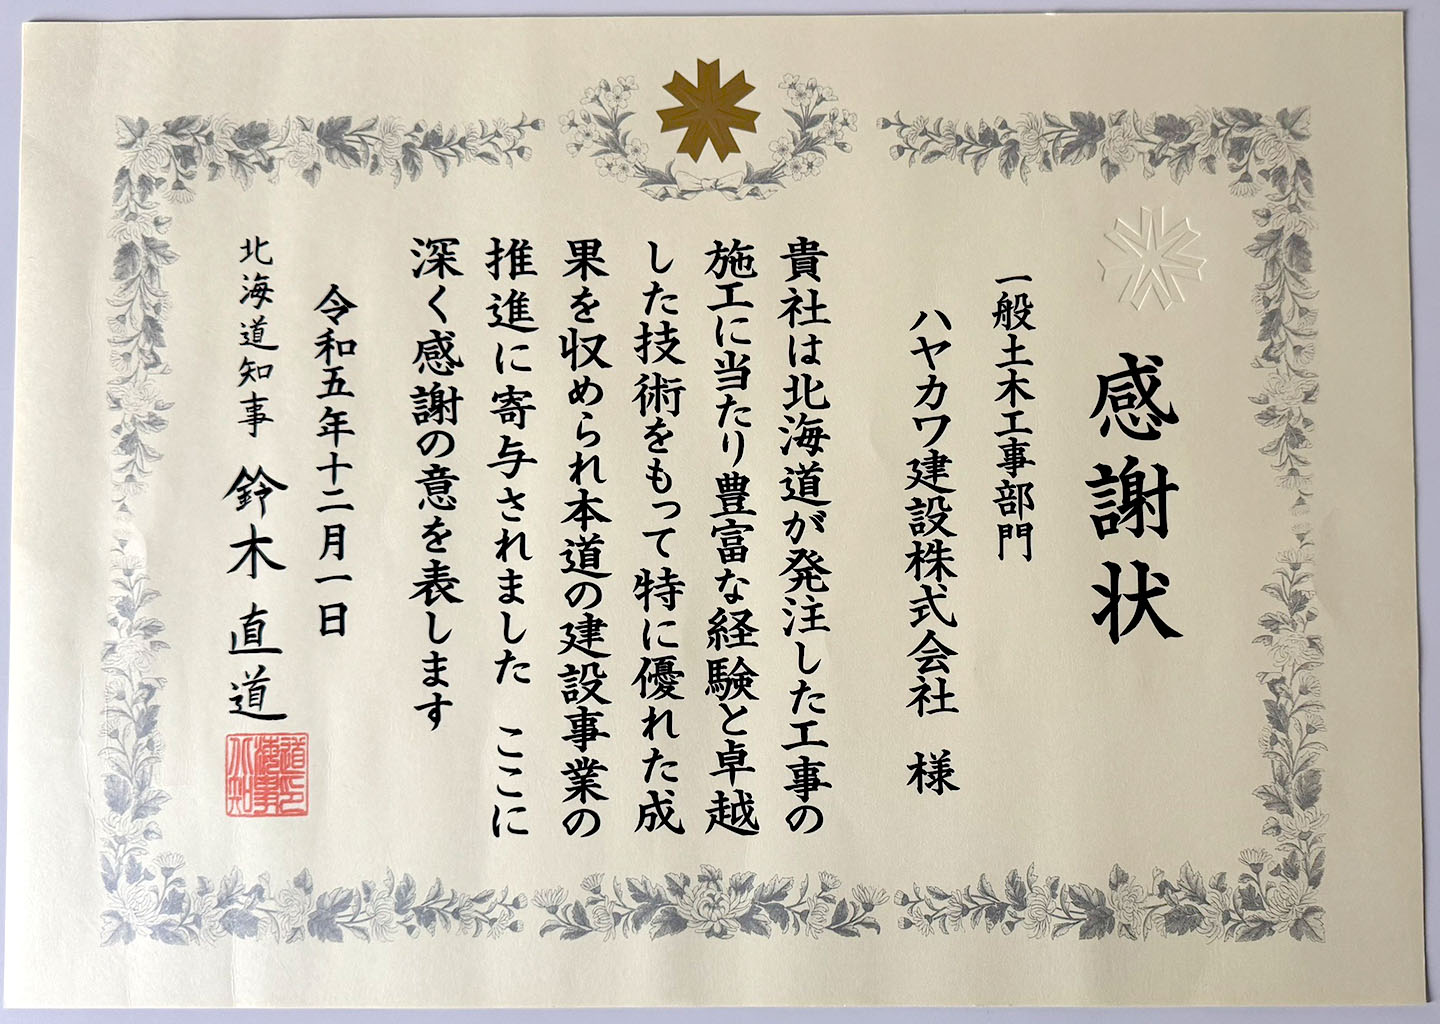 感謝状
一般土木工事部門
ハヤカワ建設株式会社 様
貴社は北海道が発注した工事の
施工に当たり豊富な経験と卓越
した技術をもって特に優れた成
果を収められ本道の建設事業の
推進に寄与されました ここに
深く感謝の意を表します
令和五年十二月一日
北海道知事 鈴木直道